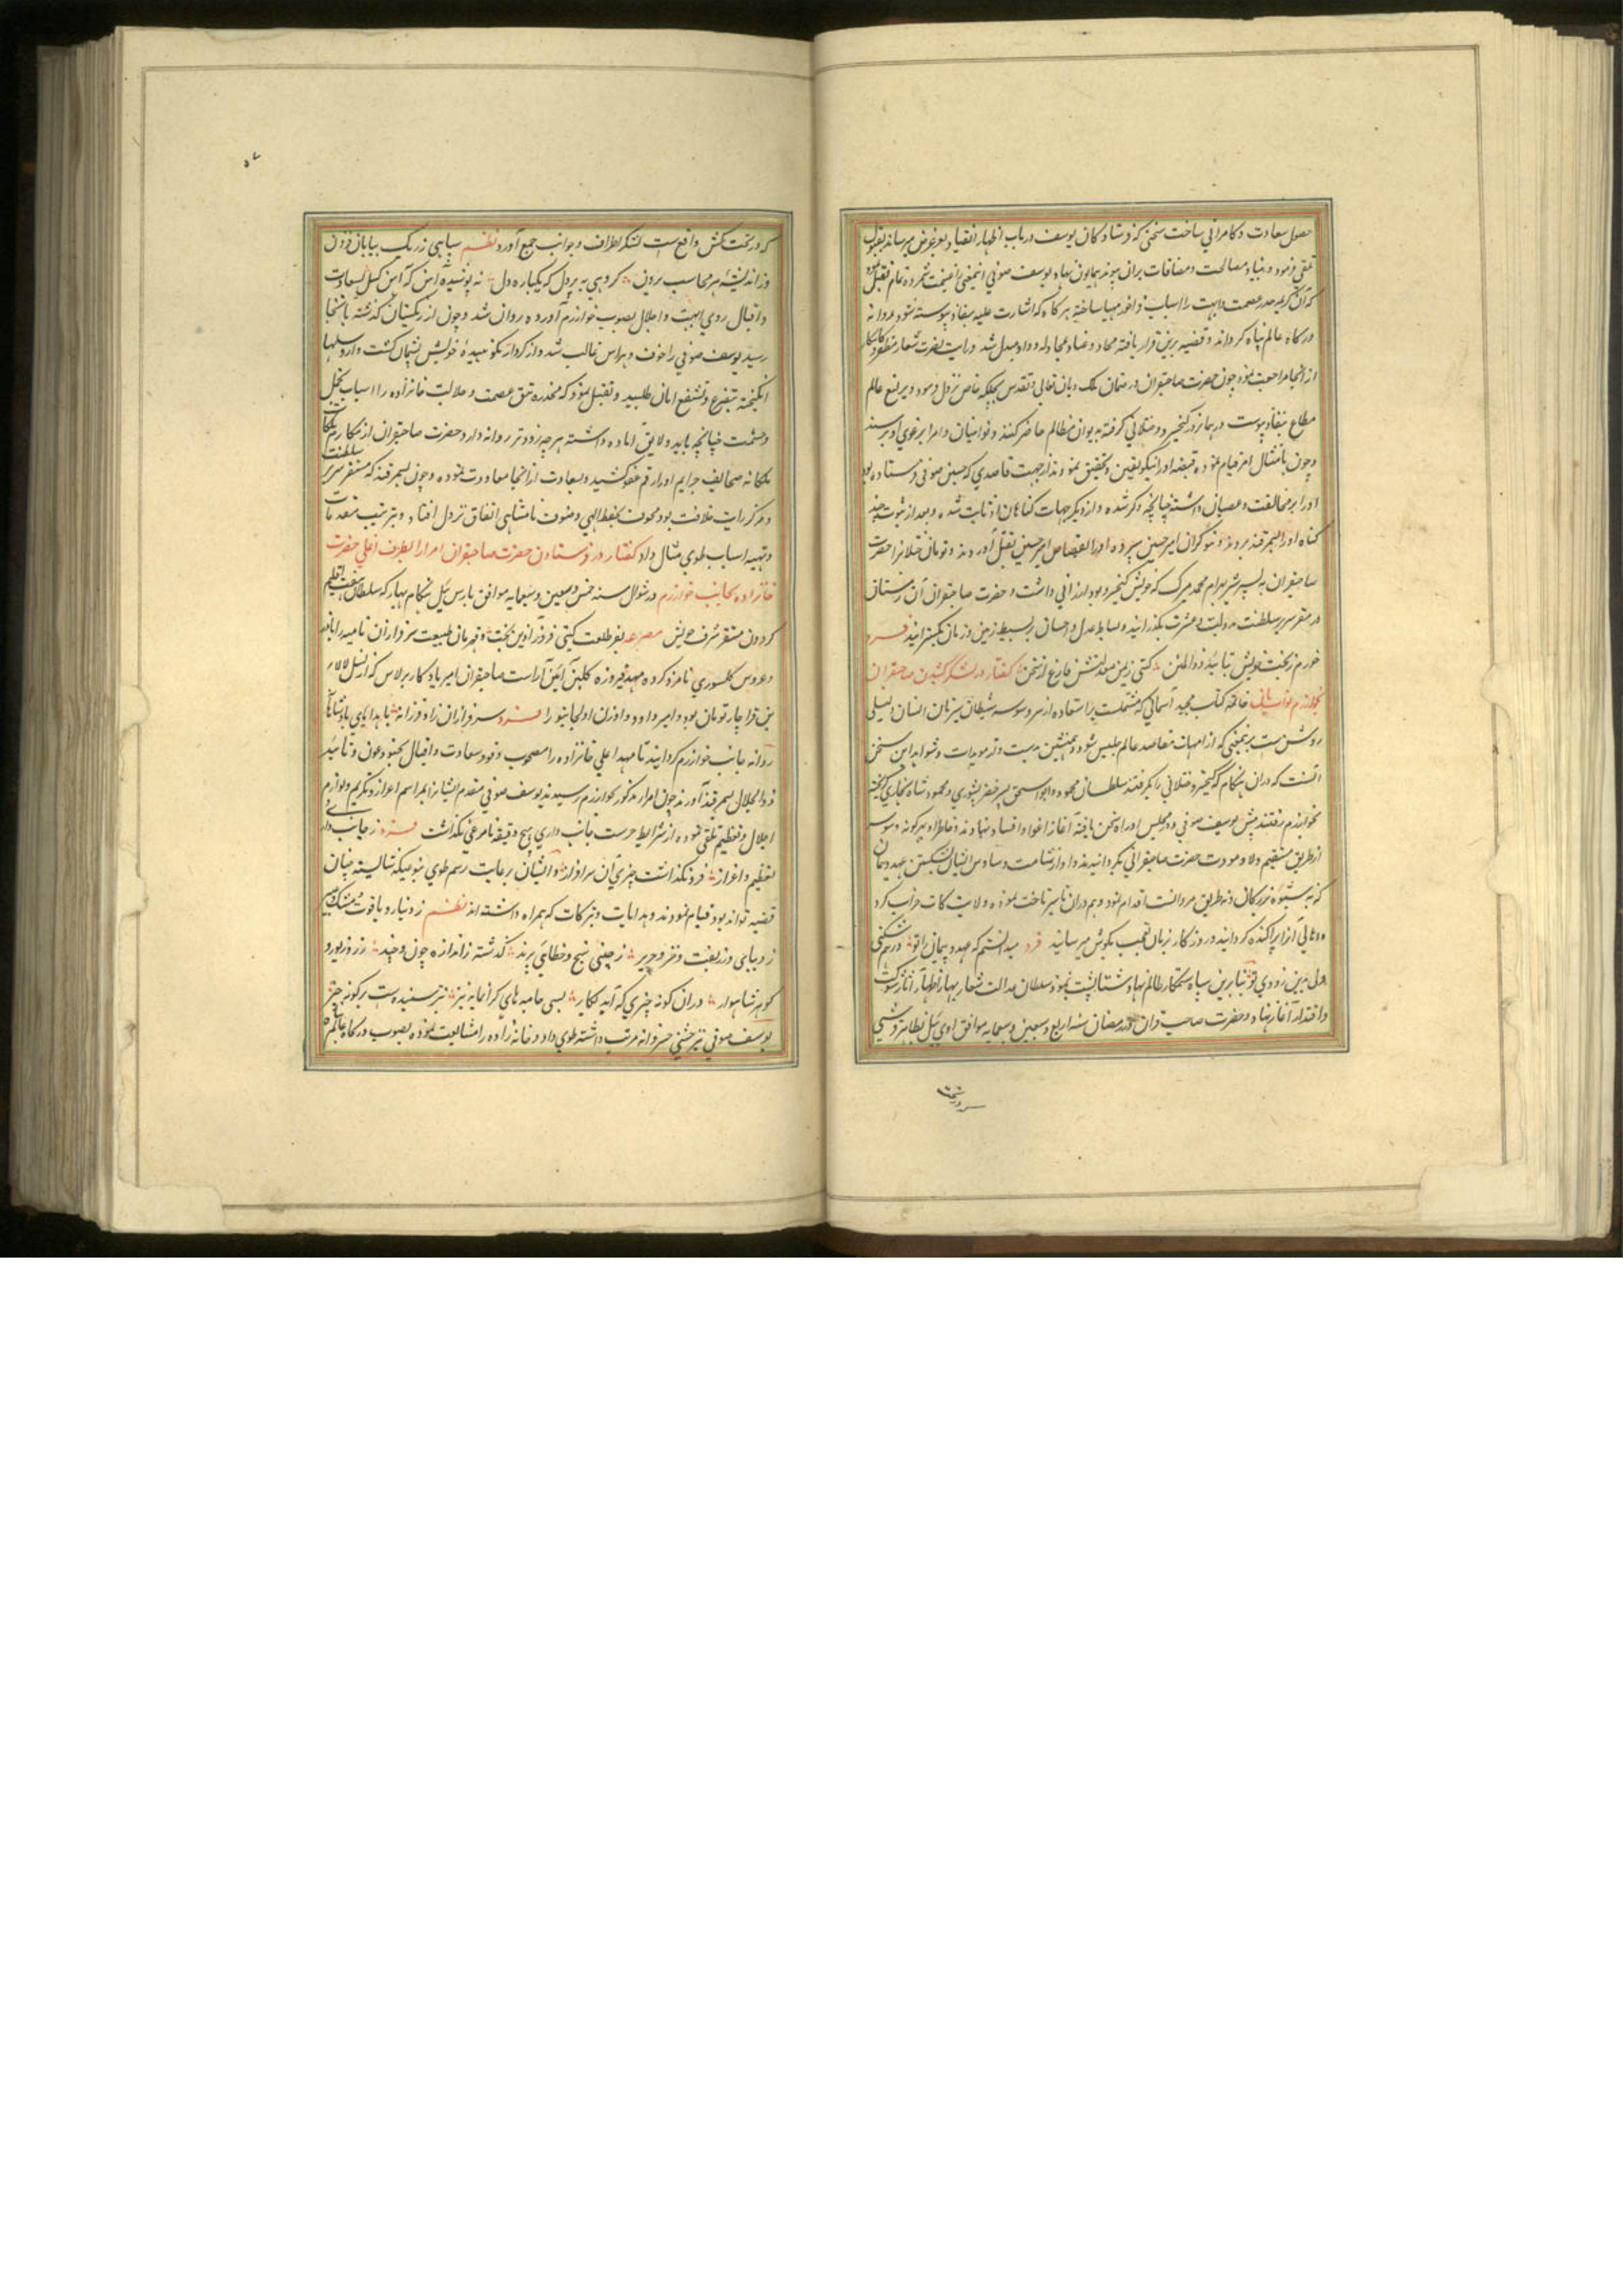 حصول سعادت و کامرانی ساخت سخنی که فرستادکان یوسف در باب اظهار انقیاد بعرض میرساند بقبول
تلقی فرمود و بنیاد مصالحت و مصافات بران پیوند همایون نهاد و یوسف صوفی اینمعنی را غنیمت شمرده تمام تقبل نمود
که آن کریمه صدر عصمت و ابهت را اسباب فراخور مهیا ساخته هرکاه که اشارت علیه بنفاذ پیوسته شود روانه
درکاه عالم پناه کرداند و قضیه برین قرار یافته عناد و مجادله و وداد مبدل شد و رایت نصرت شعار مظفر و کامکار
از آنجا مراجعت نمود چون حضرت صاحبقران در ضمان ملک دیان تعالی و تقدس بجلکه خاص نزول فرمود و یرلیغ عالم
مطاع بنفاذ پیوست در همانروز کیخسرو ختلانی کرفته بدیوان مظالم حاضر کنند و نوئینان و امرا یرغوی او برسند
و چون بامتثال امر قیام نموده قضیه او را نیکو یقین و تحقیق نمودند از جهت قاصدی که حسین صوفی فرستاده بود
او را بر مخالفت و عصیان داشته چنانچه ذکر شده و از دیکر جهات کناهان او ثابت شده و بعد از ثبوت چند
کناه او را بسمرقند بردند و بنوکران امیر حسین سپرده او را بقصاص امیر حسین بقتل آوردند و تومان ختلانرا حضرت
صاحبقران به پسر شیر بهرام محمد میرک که خویش کیخسرو بود ارزانی داشت و حضرت صاحبقرانی آن زمستان
در مقر سریر سلطنت بدولت و عشرت بکذرانید و بساط عدل و احسان بر بسیط زمین و زمان بکسترانید فرد
خورم ز بخت خویش بتایید ذوالمنن کیتی زیمن معدلتش فارغ از محن کفتار در لشکر کشیدن صاحبقران
بخوارزم نوبت ثانی خاتمه کتاب مجید آسمانی که مشتملست بر استعاذه از سر وسوسه شیطان بیزبان انسان دلیلی
روشن ست بر تمعنی که از امهات مقاصد عالم و همنشین بدست و از مویدات و شواهد این سخن
آنست که دران هنکام که کیخسرو ختلانی را بکرفتند سلطان محمود و ابواسحق پسر خضر یسوری و محمود شاه بخاری کریخته
بخوارزم رفتند پیش یوسف صوفی و در مجلس او راه سخن یافته آغاز اغوا و افساد نهادند و خاطر او بهرکونه وسوسه
از طریق مستقیم ولا و مودت حضرت صاحبقرانی بکردانیدند و او از شامت وساوس ایشان شکستن عهد و پیمان
که نه شیوه بزرکان و نه طریق مردانست اقدام نمود و هم دران تاخت نموده ولایت کات خراب کرد
و اهالی آنرا پراکنده کردانید و روزکار زبان تعجب بکوش میرسانید فرد میدانستم که عهد و پیمان تو درهم شکنی
ولی بدین زودی تو بنابرین سپاه ستمکار ظالم نهاد شتا پشت نموده سلطان عدالت شعار بهار اظهار آثار شوکت
و اقتدار آغاز نهاد و حضرت صاحب قران در رمضان سنه اربع و سبعین و سبعمایه موافق اودی ییل بظاهر قرشی
که در تخت کش واقع ست لشکر اطراف و جوانب جمع آورد نظم سپاهی ز ریک بیابان فزون
ز اندیشه هر محاسب برون کروهی به پر دل که یکباره دل نه پوشیده آهن که آهن کسل بسعادت
و اقبال روی ابهت و اجلال بصوب خوارزم آورده روان شد و چون از ریکستان کذشته بآنجا
رسید یوسف صوفی را خوف و هراس غالب شد و از کردار نکوهیده خویش پشیمان کشت و از وسیلها
انکیخته بتضرع و تشفع امان طلبید و تقبل نمود که مخدره تتق عصمت و جلالت خانزاده را اسباب تجمل
و حشمت چنانچه باید و لایق آماده داشته هرچه زودتر روانه دارد حضرت صاحبقران از مکارم ملکات
ملکانه صحایف جرایم او را رقم عفو کشیده بسعادت از آنجا معاودت نموده و چون بسمرقند که مستقر سریر سلطنت
و مرکز رایت خلافت بود بحفظ الهی و صنوف نامتناهی اتفاق نزول افتاد و بترتیب مقدمات
و تهیه اسباب طوی مثال داد کفتار در فرستادن حضرت صاحبقران امرا را بطرف اعلی حضرت
خانزاده بجانب خوارزم در شوال سنه خمس و سبعین و سبعمایه موافق بارس ییل هنکام بهار که سلطان هفت اقلیم
کردون مستقر شرف خویش مصرعه بفر طلعت کیتی فروز ازین بخت و قهرمان طبیعت سرافرازان نامیه را باغ
و عروس کلسوری نامزد کرده مهد فیروزه کلبن آئین آراست صاحبقران امیر یادکار برلاس که از نسل لالا
بن قراچار نویان بود و امیر داود و اوزان اولجایتو را فرد سرفرازان راد و فرزانه با هدایای پادشاهانه
روانه جانب خوارزم کردانید تا مهد اعلی خانزاده را مصحوب وفود سعادت و اقبال بجنود عون و تایید
ذوالجلال بسمرقند آورند چون امرا مذکور بخوارزم رسیدند یوسف صوفی مقدم ایشانرا بمراسم اعزاز و تکریم و لوازم
اجلال و تعظیم تلقی نموده از شرایط حرمت جانب داری هیچ دقیقه نامرعی نکذاشت فرد ز جانب داری
تعظیم و اعزاز فرو نکذاشت چیزی آن سرافراز و ایشان برعایت رسم طوی بنوعیکه شایسته چنان
قضیه تواند بود قیام نمودند و هدایات و تبرکات که همراه داشته اند نظم ز دینار و یاقوت و مشک و عبیر
ز دیبای و زربفت و خز و حریر ز چینی نسیج و خطایی پرند کذشته ز اندازه چون و چند ز زر و زیور و
کوهر شاهوار دران کونه چیزی که آید بکار بسی جامه های کرانمایه نیز پسندیدست هرکونه چیز
یوسف صوفی نیز جشنی خسروانه مرتب داشته طوی داد و خانه زاده را مشایعت نموده بصوب درکاه عالم پناه